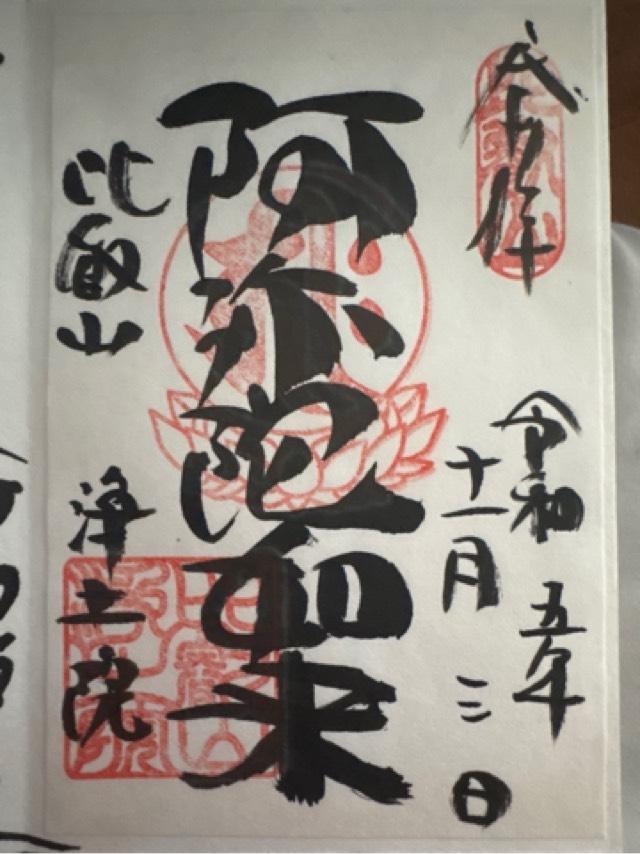 令和 五年
十一月 三日
阿弥陀如来
比叡山 浄土院